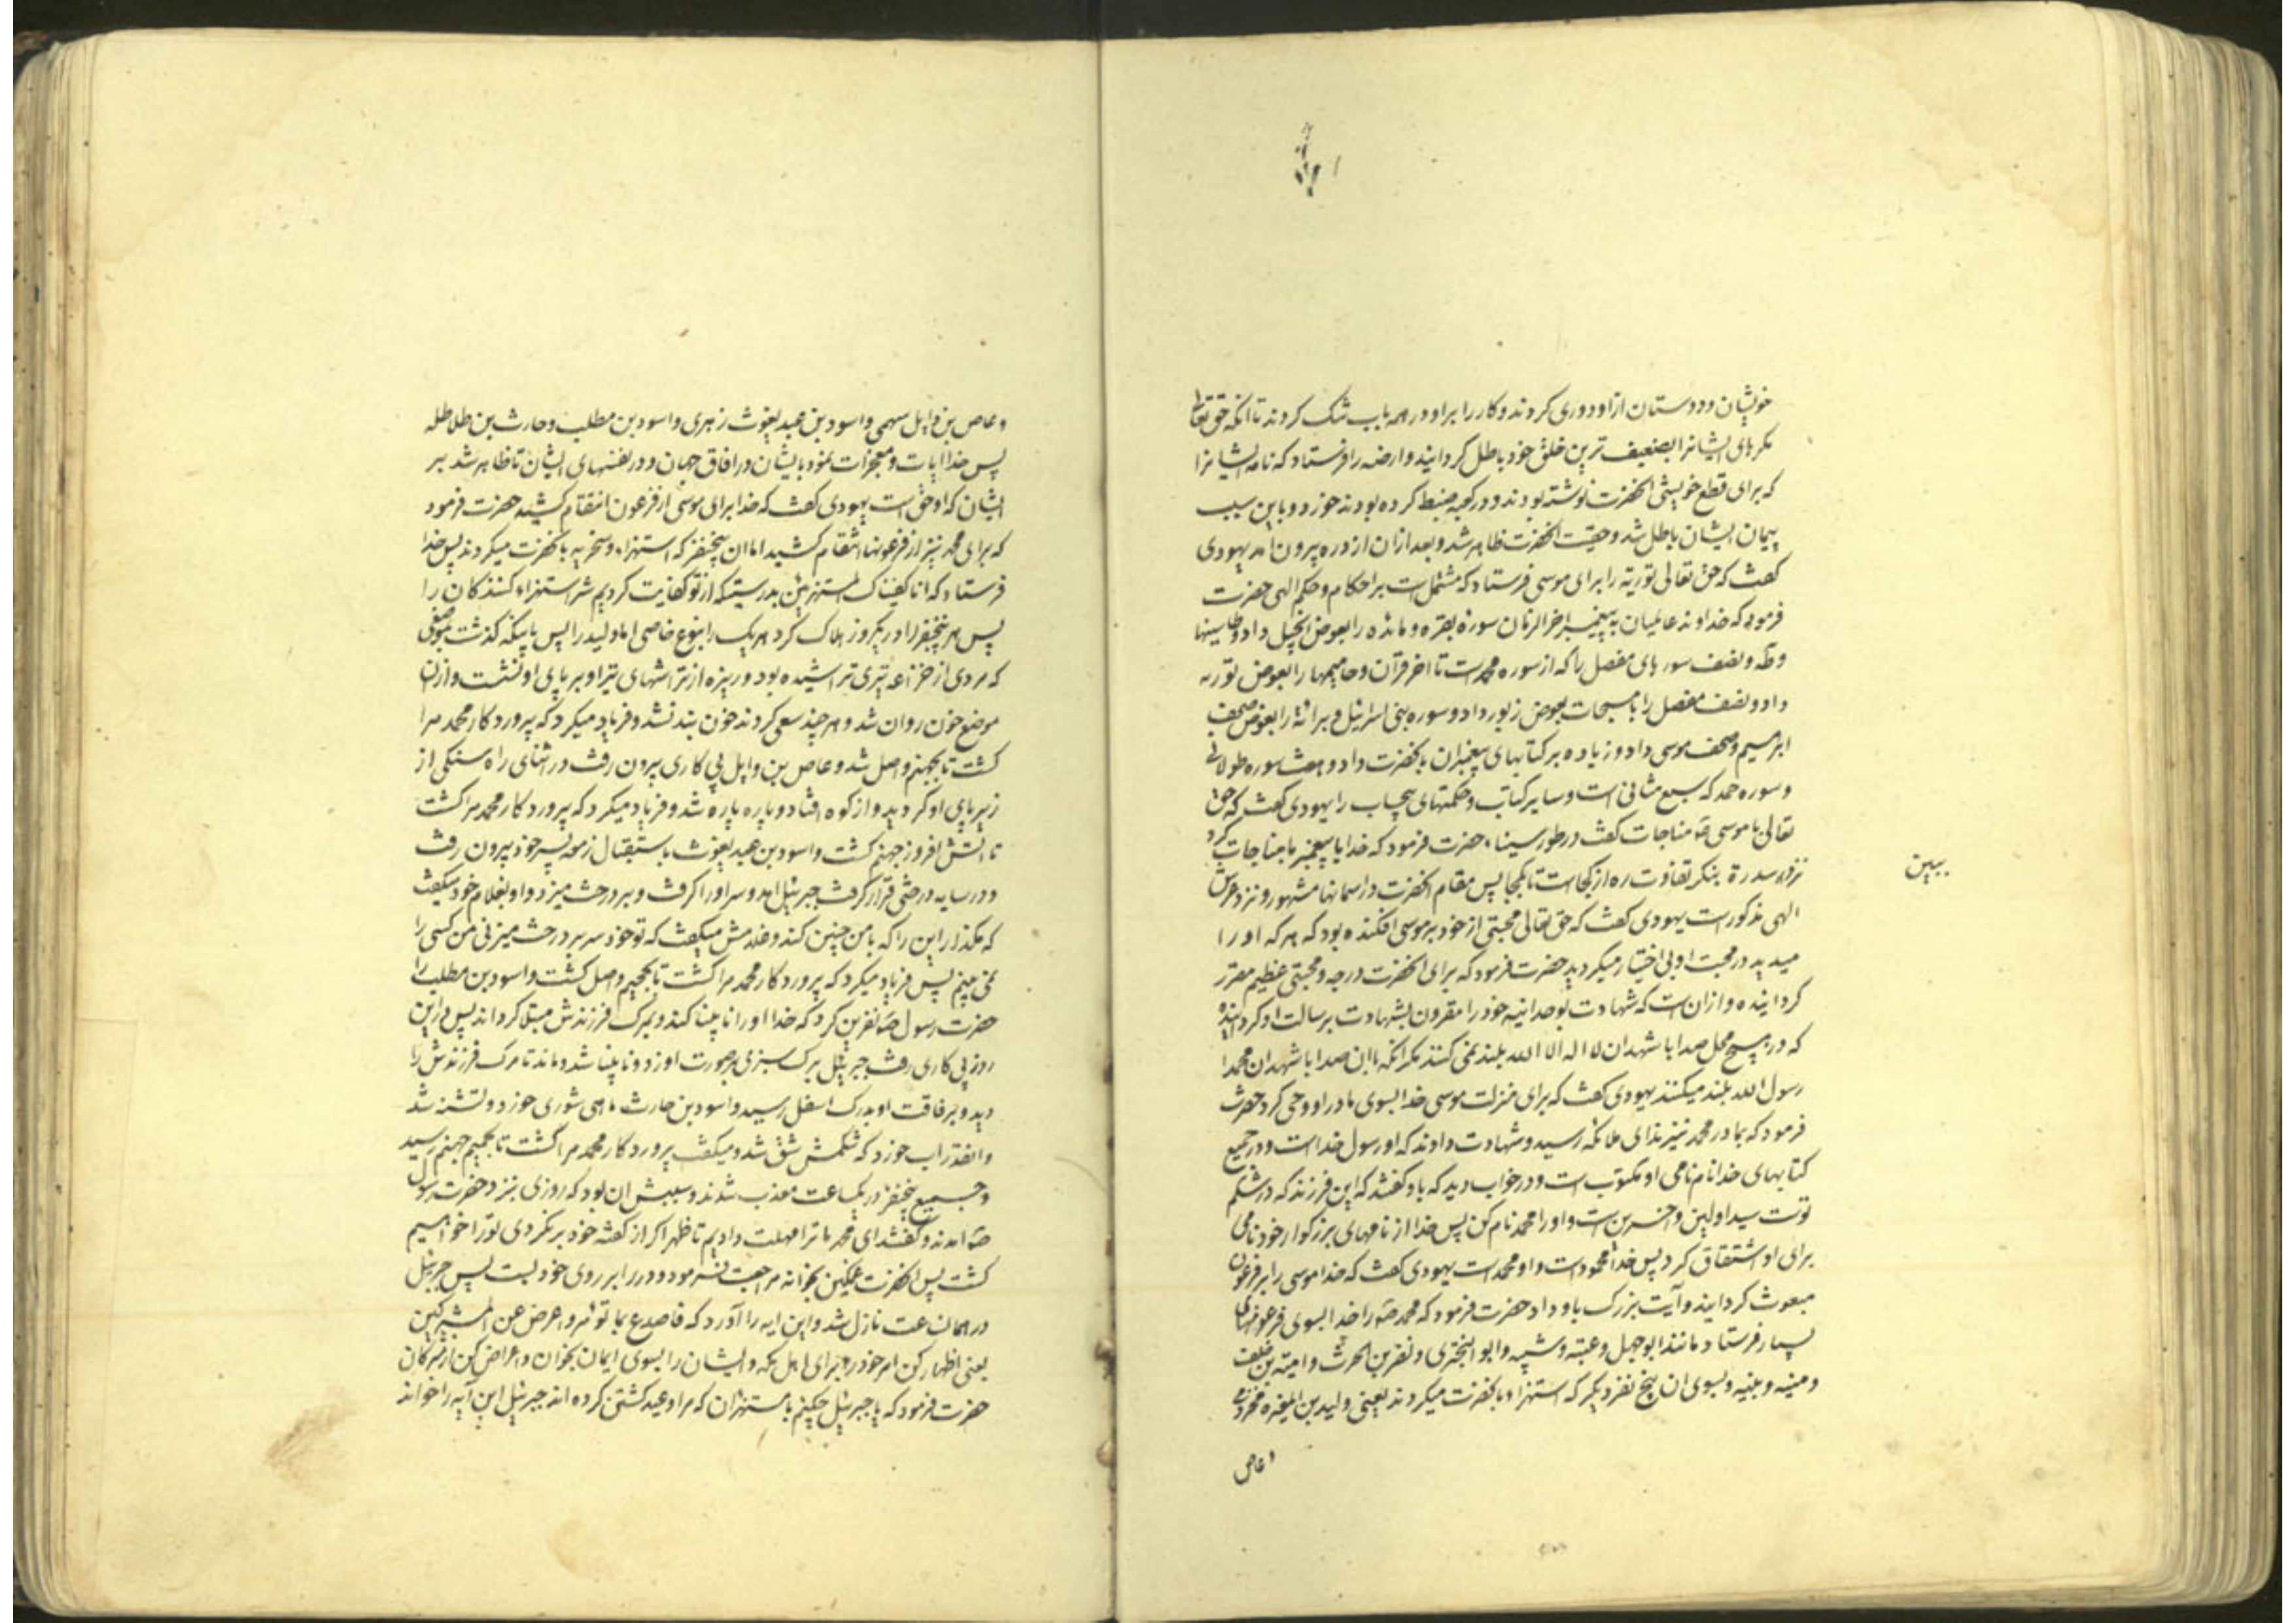 خویشان و دوستان از او دوری کردند و کار را بر او در همه باب تنک کردند تا انکه حق تعالی
مکرهای ایشانرا بضعیف ترین خلق خود باطل کردانید و ارضه را فرستاد که نامه ایشانرا
که برای قطع خویشی انحضرت نوشته بودند و در کعبه ضبط کرده بودند خورد و باین سبب
پیمان ایشان باطل شد و حقیت انحضرت ظاهر شد و بعد ازان از دره بیرون امد یهودی
کفت که حق تعالی توریة را برای موسی فرستاد که مشتمل است بر احکام و حکم الهی حضرت
فرمود که خداوند عالمیان به پیغمبر اخر الزمان سوره بقره و مائده را بعوض انجیل داد و طاسینها
و طه و نصف سورهای مفصل را که از سوره محمد است تا اخر قرآن و حامیمها را بعوض توریه
داد و نصف مفصل را با مسبحات بعوض زبور داد و سوره بنی اسرائیل و برائة را بعوض صحف
ابرهیم و صحف موسی داد و زیاده بر کتابهای پیغمبران بانحضرت داد و هفت سوره طولانی
و سوره حمد که سبع مثانی است و سایر کتاب و حکمتهای بیحساب را یهودی کفت که حق
تعالی با موسی مناجات کفت در طور سیناء حضرت فرمود که خدا با پیغمبر ما مناجات کرد
نزد سدرة بنکر تفاوت ره از کجاست تا بکجا پس مقام انحضرت در اسمانها مشهور و نزد عرش
ببین
الهی مذکور است یهودی کفت که حق تعالی محبتی از خود بر موسی افکنده بود که هر که او را
میدید در محبت او بی اختیار میکردید حضرت فرمود که برای انحضرت درجه و محبتی عظیم مقرر
کردانیده و ازان است که شهادت بوحدانیه خود را مقرون بشهادت برسالت او کردانیده
که در هیچ محل صدا باشهدان لا اله الا الله بلند نمی کنند مکر انکه باان صدا باشهدان محمدا
رسول الله بلند میکنند یهودی کفت که برای منزلت موسی خدا بسوی مادر او وحی کرد حضرت
فرمود که بمادر محمد نیز ندای ملائکه رسید و شهادت دادند که او رسول خداست و در جمیع
کتابهای خدا نام نامی او مکتوب است و در خواب دید که باو کفتند که این فرزند که در شکم
توست سید اولین و اخرین است و او را محمد نام کن پس خدا از نامهای بزرکوار خود نامی
برای او اشتقاق کرد پس خدا محمود است و او محمد است یهودی کفت که خدا موسی را بر فرعون
مبعوث کردانید و آیت بزرک باو داد حضرت فرمود که محمد را خدا بسوی فرعونهای
بسیار فرستاد مانند ابوجهل و عتبه و شیبه و ابوالبختری و نضر بن الحرث و امیة بن خلف
و منیه و بنیه و بسوی ان پنج نفر دیکر که استهزاء بانحضرت میکردند یعنی ولید بن المغیره مخزومی
و عاص
و عاص بن وایل سهمی و اسود بن عبد یغوث زهری و اسود بن مطلب و حارث بن طلاطله
پس خدا ایات و معجزات نمود بایشان در افاق جهان و در نفسهای ایشان تا ظاهر شد بر
ایشان که او حق است یهودی کفت که خدا برای موسی از فرعون انتقام کشید حضرت فرمود
که برای محمد نیز از فرعونها انتقام کشید اما ان پنجنفر که استهزاء و سخریه بانحضرت میکردند پس خدا
فرستاد که انا کفیناک المستهزئین بدرستیکه از تو کفایت کردیم شر استهزاء کنندکان را
پس هر پنجنفر را در یکروز هلاک کرد هر یک را بنوع خاصی اما ولید را پس بانکه کذشت بموضعی
که مردی از خزاعه تیری تراشیده بود و ریزه از تراشهای تیر او بر پای او نشست و ازان
موضع خون روان شد و هر چند سعی کردند خون بند نشد و فریاد میکرد که پروردکار محمد مرا
کشت تا بجهنم واصل شد و عاص بن وایل پی کاری بیرون رفت در اثنای راه سنکی از
زیر پای او کردید و از کوه افتاد و پاره پاره شد و فریاد میکرد که پروردکار محمد مرا کشت
تا اتش افروز جهنم کشت و اسود بن عبد یغوث باستقبال زمعه پسر خود بیرون رفت
و در سایه درختی قرار کرفت جبرئیل امد و سر او را کرفت و بر درخت میزد و او بغلام خود میکفت
که مکذار این را که با من چنین کند و غلامش میکفت که تو خود سر بر درخت میزنی من کسی را
نمی بینم پس فریاد میکرد که پروردکار محمد مرا کشت تا بجحیم واصل کشت و اسود بن مطلب را
حضرت رسول نفرین کرد که خدا او را نابینا کند و بمرک فرزندش مبتلا کرداند پس در این
روز پی کاری رفت جبرئیل برک سبزی بر صورت او زد و نابینا شد و ماند تا مرک فرزندش را
دید و برفاقت او بدرک اسفل رسید و اسود بن حارث ماهی شوری خورد و تشنه شد
و انقدر اب خورد که شکمش شق شد و میکفت پروردکار محمد مرا کشت تا بحمیم جهنم رسید
و جمیع پنجنفر در یکساعت معذب شدند و سببش ان بود که روزی بنزد حضرت رسول
امدند و کفتند ای محمد ما ترا مهلت دادیم تا ظهر اکر از کفته خود بر نکردی تو را خواهیم
کشت پس انحضرت غمکین بخانه مراجعت نمود و در را بر روی خود بست پس جبرئیل
در همان ساعت نازل شد و این ایه را آورد که فاصدع بما تؤمر و اعرض عن المشرکین
یعنی اظهار کن امر خود را برای اهل مکه و ایشان را بسوی ایمان بخوان و اعراض کن از مشرکان
حضرت فرمود که یا جبرئیل چکنم با مستهزئان که مرا وعید کشتن کرده اند جبرئیل این آیه را خواند